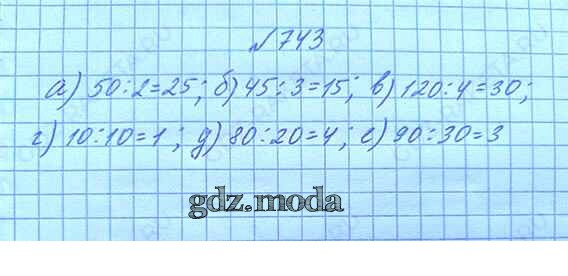 № 743
а) 50:2=25; б) 45:3=15; в) 120:4=30;
г) 10:10=1; д) 80:20=4; е) 90:30=3
gdz.moda